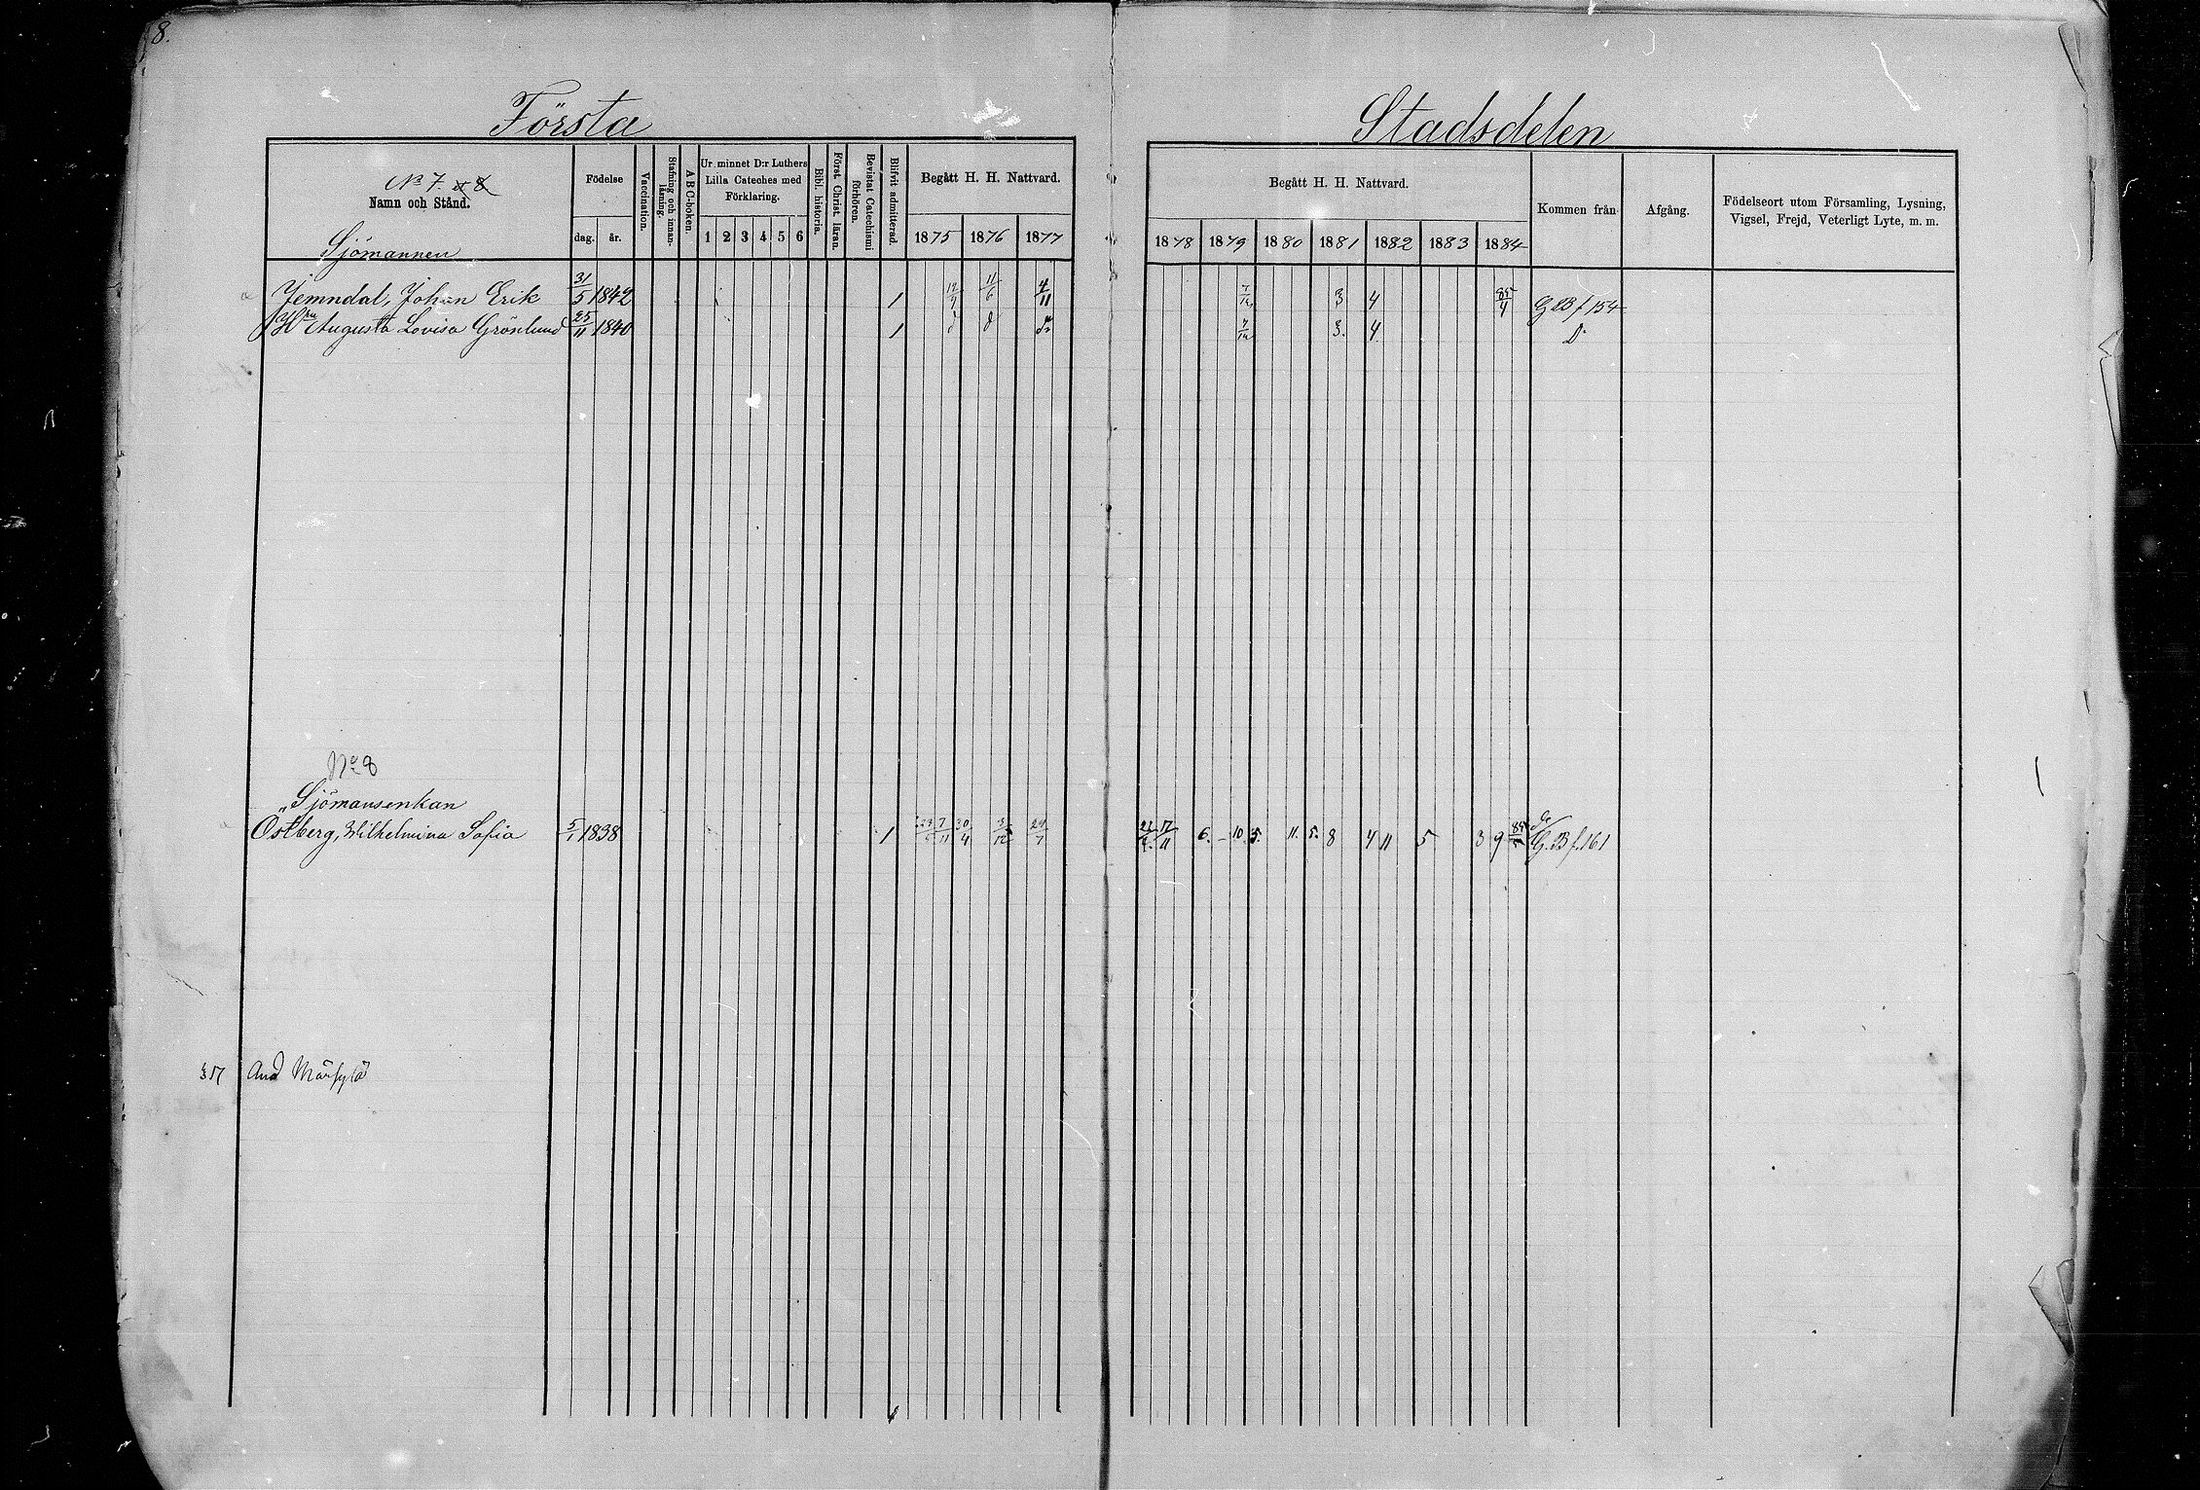 8.
Första Stadsdelen
No 7. & 8
Namn och Stånd.
Sjömannen
Födelse
dag. år.
Vaccination.
Stafning och innanläsning.
A B C-boken.
Ur minnet D:r Luthers
Lilla Cateches med
Förklaring.
1 2 3 4 5 6
Bibl. historia.
Först. Christ. läran.
Bevistat Catechismi förhören.
Blifvit admitterad.
Begått H. H. Nattvard.
1875 1876 1877
Begått H. H. Nattvard.
1878 1879 1880 1881 1882 1883 1884
Kommen från
Afgång.
Födelseort utom Församling, Lysning,
Vigsel, Frejd, Veterligt Lyte, m. m.
Jemndal, Johan Erik 31/5 1842 1 11/6 4/11 7/12 3 4 85/4 G B f 154
Hru Augusta Lovisa Grönlund 25/11 1840 1 d d do 7/12 3. 4 Do
No 8
Sjömansenkan
Östberg, Wilhelmina Sofia 5/1 1838 1 7/11 30/4 3/12 29/7 17/11 6. - 10. 5. 11. 5. 8 4 11 5 3 9 G. B f. 161
And